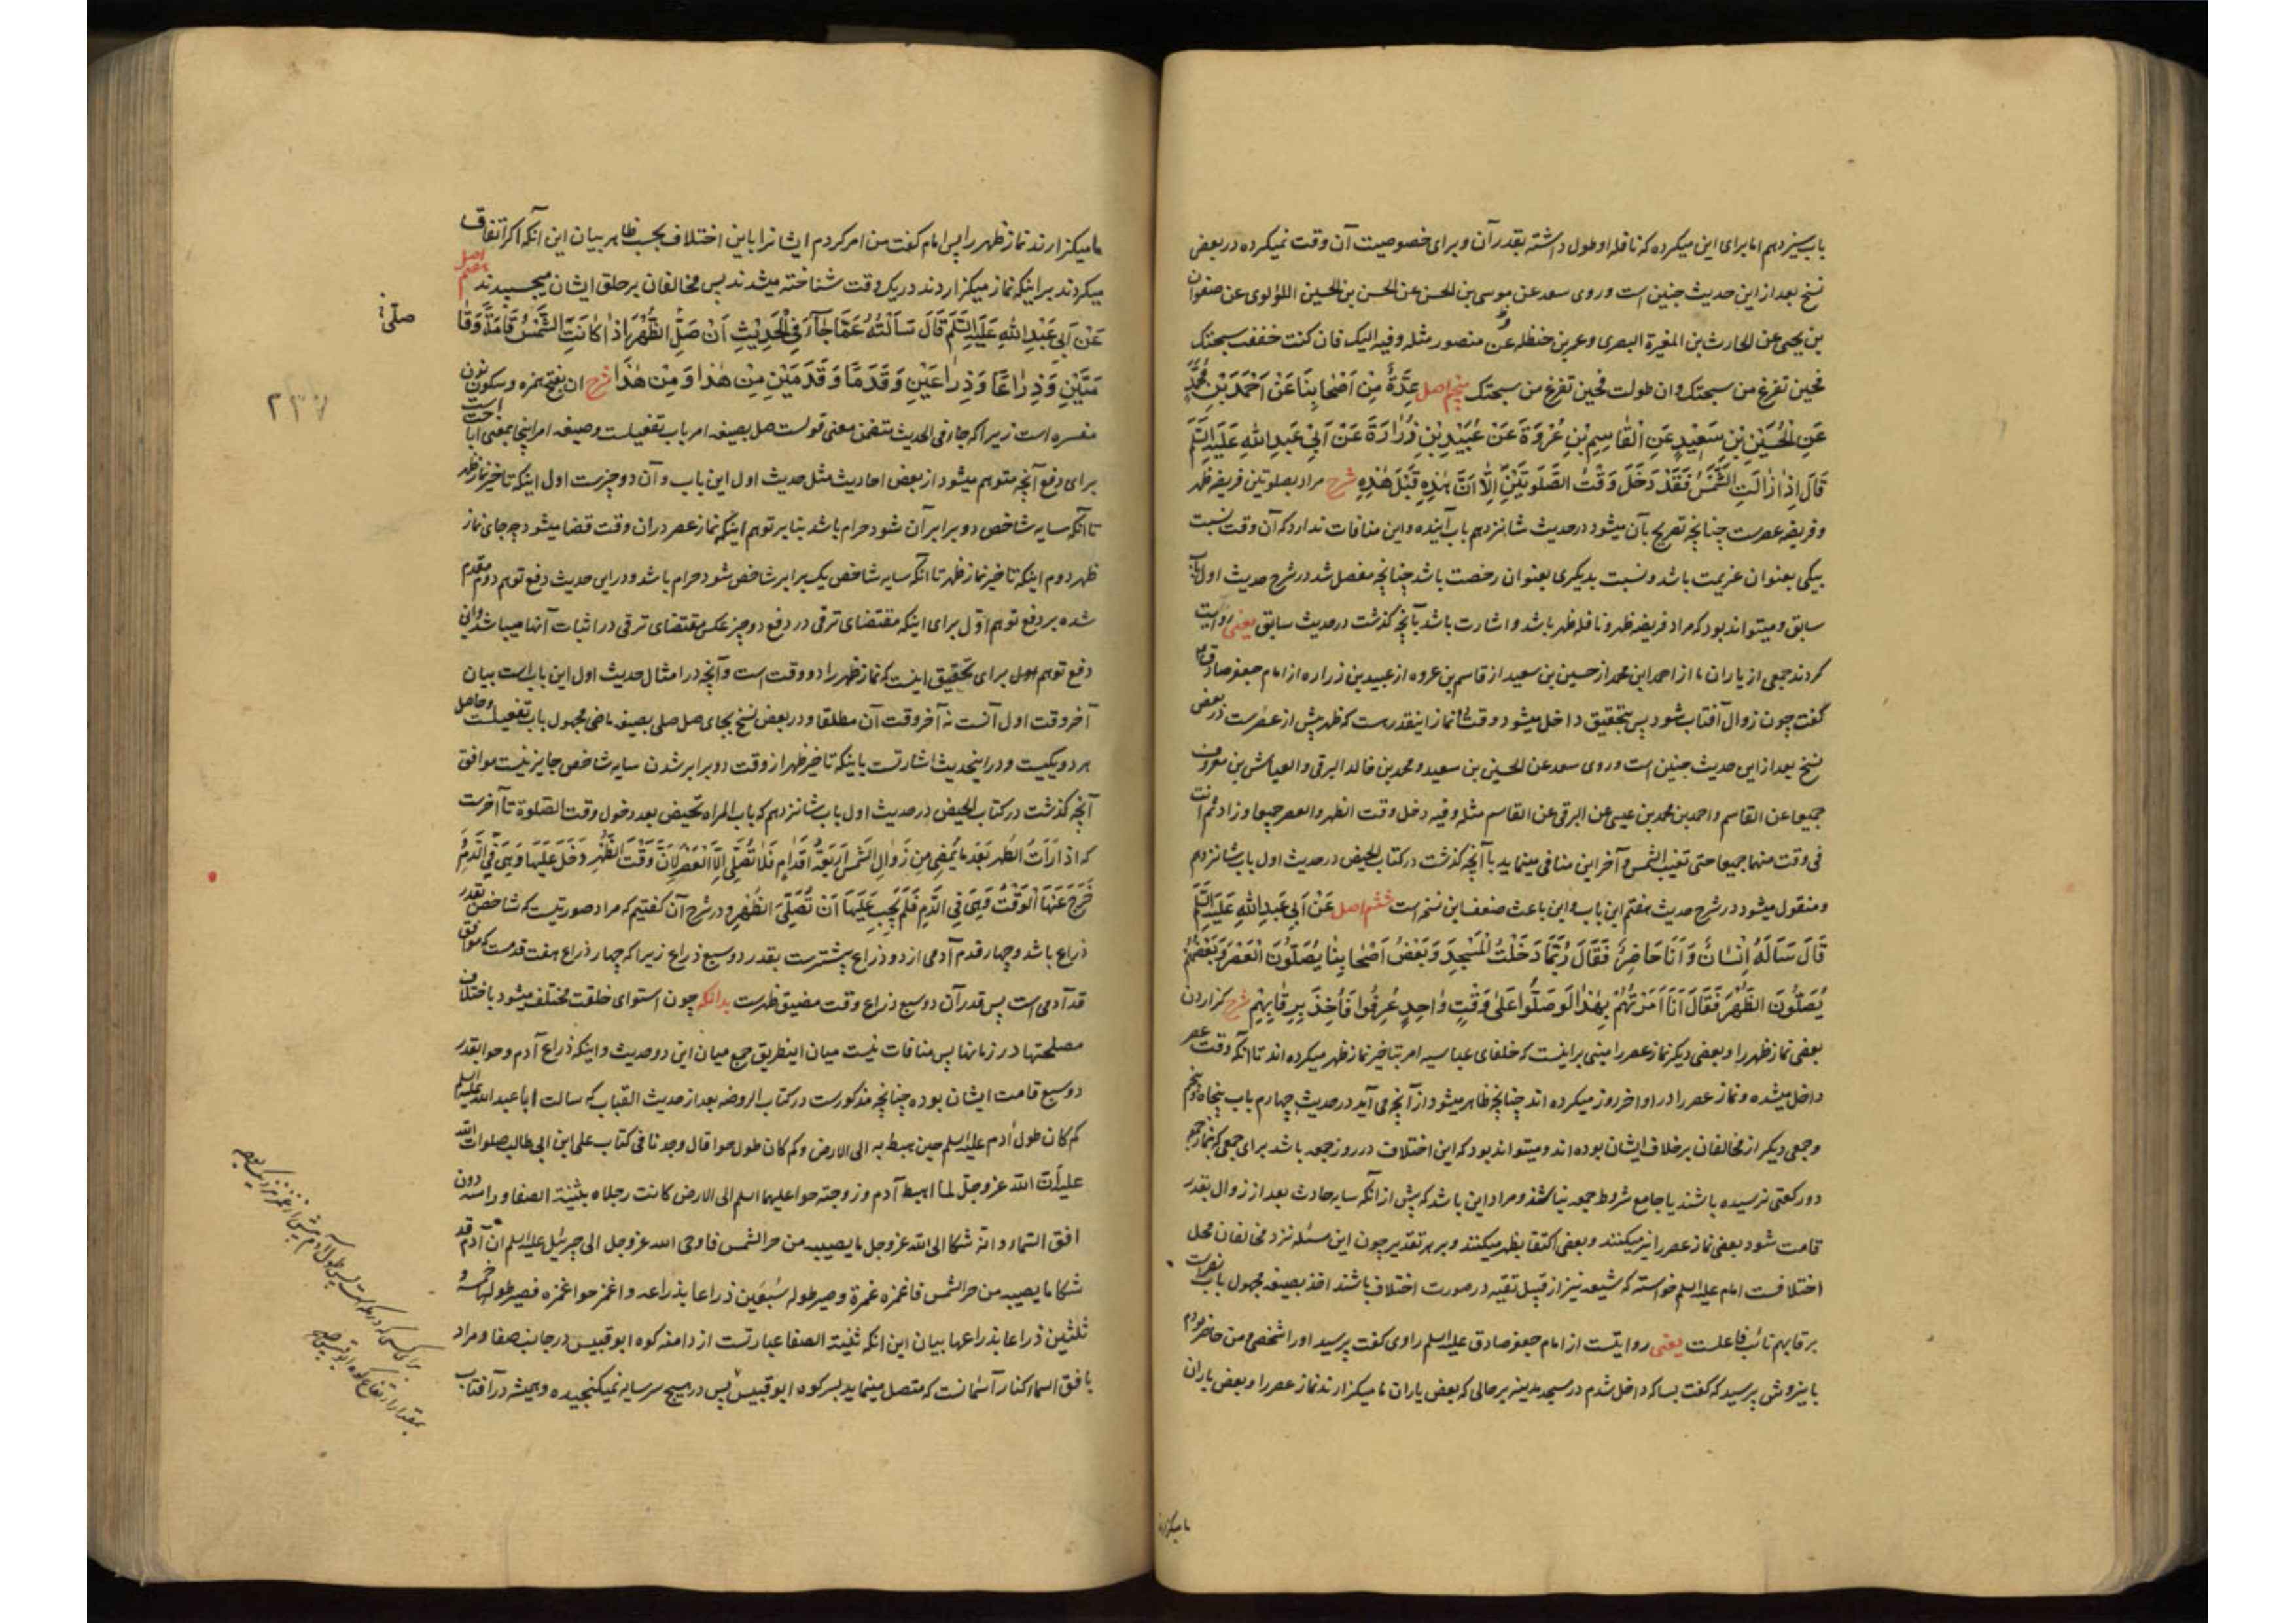 باب سیزدهم اما برای این میکرده که نافلۀ او طول داشته بقدر آن و برای خصوصیت آن وقت نمیکرده در بعض
نسخ بعد از این حدیث چنین است وروی سعد عن موسی بن الحسن عن الحسن بن الحسین اللؤلوی عن صفوان
بن یحیی عن الحارث بن المغیرة البصری وعمر بن حنظله عن منصور مثله وفیه الیک فان کنت خففت سبحتک
فحین تفرغ من سبحتک وان طولت فحین تفرغ من سبحتک پنجم اصل عِدَّةٌ مِنْ اَصْحٰابِنَا عَنْ اَحْمَدَ بْنِ مُحَمَّدٍ
عَنِ الْحُسَیْنِ بْنِ سَعِیْدٍ عَنِ الْقٰاسِمِ بْنِ عُرْوَةَ عَنْ عُبَیْدِ بْنِ زُرٰارَةَ عَنْ اَبِیْ عَبْدِ اللّٰهِ عَلَیْهِ السَّلَمُ
قَالَ اِذٰا زٰالَتِ الشَّمْسُ فَقَدْ دَخَلَ وَقْتُ الصَّلَوتَیْنِ اِلَّا اَنَّ هٰذِهِ قَبْلَ هٰذِهِ شرح مراد بصلوتین فریضه ظهر
و فریضه عصرست چنانچه تصریح بآن میشود در حدیث شانزدهم باب آینده و این منافات ندارد که آن وقت نسبت
بیکی بعنوان عزیمت باشد و نسبت بدیکری بعنوان رخصت باشد چنانچه مفصل شد در شرح حدیث اول باب
سابق و میتواند بود که مراد فریضه ظهر و نافله ظهر باشد و اشارت باشد بآنچه کذشت در حدیث سابق یعنی روایت
کردند جمعی از یاران ما از احمد ابن محمد از حسین بن سعید از قاسم بن عروه از عبید بن زراره از امام جعفر صادق ع
گفت چون زوال آفتاب شود پس بتحقیق داخل میشود وقت دو نماز اینقدرست که ظهر پیش از عصرست در بعض
نسخ بعد از این حدیث چنین است وروی سعد عن الحسین بن سعید و محمد بن خالد البرقی والعباس بن معروف
جمیعا عن القاسم واحمد بن محمد بن عیسی عن البرقی عن القاسم مثله وفیه دخل وقت الظهر والعصر جمیعا وزاد ثم انت
فی وقت منهما جمیعا حتی تغیب الشمس و آخر این منافی مینماید با آنچه کذشت در کتاب الحیض در حدیث اول باب شانزدهم
و منقول میشود در شرح حدیث هفتم این باب و این باعث ضعف این نسخ است ششم اصل عَنْ اَبِیْ عَبْدِ اللّٰهِ عَلَیْهِ السَّلَمُ
قَالَ سَاَلَهُ اِنْسٰانٌ وَ اَنَا حَاضِرٌ فَقَالَ رُبَّمَا دَخَلْتُ الْمَسْجِدَ وَ بَعْضُ اَصْحٰابِنٰا یُصَلُّوْنَ الْعَصْرَ وَ بَعْضُهُمْ
یُصَلُّوْنَ الظُّهْرَ فَقَالَ اَنَا اَمَرْتُهُمْ بِهٰذَا لَوْ صَلُّوْا عَلٰی وَقْتٍ وٰاحِدٍ عُرِفُوْا فَاُخِذَ بِرِقٰابِهِمْ شرح کزاردن
بعضی نماز ظهر را و بعضی دیکر نماز عصر را مبنی بر اینست که خلفای عباسیه امر بتاخیر نماز ظهر میکرده اند تا آنکه وقت عصر
داخل میشده و نماز عصر را در اواخر روز میکرده اند چنانچه ظاهر میشود از آنچه می آید در حدیث چهارم باب پنجاه و پنجم
و جمعی دیکر از مخالفان بر خلاف ایشان بوده اند و میتواند بود که این اختلاف در روز جمعه باشد برای جمعی که بنماز جمعه
دو رکعتی نرسیده باشند یا جامع شروط جمعه نباشند و مراد این باشد که پیش از آنکه سایه حادث بعد از زوال بقدر
قامت شود بعضی نماز عصر را نیز میکنند و بعضی اکتفا بظهر میکنند و بر هر تقدیر چون این مسئله نزد مخالفان محل
اختلافست امام علیه السلم خواسته که شیعه نیز از قبیل تقیه در صورت اختلاف باشند اخذ بصیغه مجهول باب نصرست
برقابهم نائب فاعلست یعنی روایتست از امام جعفر صادق علیه السلم راوی کفت پرسید او را شخصی و من حاضر بودم
باینروش پرسید که کفت بسا که داخل شدم در مسجد مدینه بر حالی که بعض یاران ما میکزارند نماز عصر را و بعض یاران
ما میکزارند
ما میکزارند نماز ظهر را پس امام کفت من امر کردم ایشانرا باین اختلاف بحسب ظاهر بیان این آنکه اکر اتفاق
میکردند بر اینکه نماز میکزاردند در یک وقت شناخته میشدند پس مخالفان بر حلق ایشان میچسبیدند هفتم اصل
عَنْ اَبِیْ عَبْدِ اللّٰهِ عَلَیْهِ السَّلَمُ قَالَ سَاَلْتُهُ عَمَّا جٰاءَ فِی الْحَدِیْثِ اَنْ صَلِّ الظُّهْرَ اِذٰا کٰانَتِ الشَّمْسُ قَامَةً وَ قَا
صلّی خ
مَتَیْنِ وَ ذِرٰاعًا وَ ذِرٰاعَیْنِ وَ قَدَمًا وَ قَدَمَیْنِ مِنْ هٰذٰا وَ مِنْ هٰذَا شرح ان بفتح همزه و سکون نون
مفسره است زیرا که جاء فی الحدیث متضمن معنی قولست صل بصیغه امر باب تفعیلست و صیغه امر اینجا بمعنی اباحت است
۲۳۷
برای دفع آنچه متوهم میشود از بعض احادیث مثل حدیث اول این باب و آن دو چیزست اول اینکه تاخیر نماز ظهر
تا آنکه سایه شاخص دو برابر آن شود حرام باشد بنا بر توهم اینکه نماز عصر دران وقت قضا میشود چه جای نماز
ظهر دوم اینکه تاخیر نماز ظهر تا آنکه سایه شاخص یک برابر شاخص شود حرام باشد و در این حدیث دفع توهم دوم مقدم
شده بر دفع توهم اوّل برای اینکه مقتضای ترقی در دفع دو چیز عکس مقتضای ترقی در اثبات آنها میباشد و این
دفع توهم اول برای تحقیق اینست که نماز ظهر را دو وقت است و آنچه در امثال حدیث اول این باب است بیان
آخر وقت اول آنست نه آخر وقت آن مطلقا و در بعض نسخ بجای صل صلی بصیغه ماضی مجهول باب تفعیلست و حاصل
هر دو یکیست و در اینحدیث اشارتست باینکه تاخیر ظهر از وقت دو برابر شدن سایه شاخص جایز نیست موافق
آنچه کذشت در کتاب الحیض در حدیث اول باب شانزدهم که باب المراه تحیض بعد دخول وقت الصلوة تا آخرست
که اذا رَاَتْ الطُّهر بَعْدَ مٰا یَمْضِی مِن زَوٰالِ الشَّمْسِ اَرْبَعَةُ اَقْدٰامٍ فَلٰا تُصَلِّی اِلَّا الْعَصْرَ لِاَنَّ وَقْتَ الظُّهْرِ دَخَلَ عَلَیْهَا وَ هِیَ فِی الدَّمِ وَ
خَرَجَ عَنْهَا الْوَقْتُ وَ هِیَ فِی الدَّمِ فَلَمْ یَجِبْ عَلَیْهَا اَنْ تُصَلِّیَ الظُّهْرَ و در شرح آن کفتیم که مراد صورتیست که شاخص بقدر
ذراع باشد و چهار قدم آدمی از دو ذراع بیشترست بقدر دو سبع ذراع زیرا که چهار ذراع هفت قدمست که موافق
قد آدمی است پس قدر آن دو سبع ذراع وقت مضیق ظهرست بدانکه چون استوای خلقت مختلف میشود باختلاف
مصلحتها در زمانها پس منافات نیست میان اینطریق جمع میان این دو حدیث و اینکه ذراع آدم و حوا بقدر
دو سبع قامت ایشان بوده چنانچه مذکورست در کتاب الروضه بعد از حدیث القباب که سالت ابا عبد الله علیه السلم
کم کان طول آدم علیه السلم حین هبط به الی الارض وکم کان طول حوا قال وجدنا فی کتاب علی ابن ابی طالب صلوات الله
علیه انّ الله عزوجلّ لما اهبط آدم و زوجته حوا علیهما السلم الی الارض کانت رجلاه بثنیة الصفا وراسه دون
افق السماء وانه شکا الی الله عز وجل ما یصیبه من حر الشمس فاوحی الله عز وجل الی جبرئیل علیه السلم ان آدم قد
شکا ما یصیبه من حر الشمس فاغمزه غمزة وصیر طوله سَبْعَین ذراعا بذراعه واغمز حوا غمزه فصیر طولها خمسه و
ثلثین ذراعا بذراعها بیان این انکه ثنیة الصفا عبارتست از دامنه کوه ابوقبیس در جانب صفا و مراد
بافق السماء کنار آسمانست که متصل مینماید بسر کوه ابوقبیس پس در هیچ سر سایه نمیکنجیده و همیشه در آفتاب